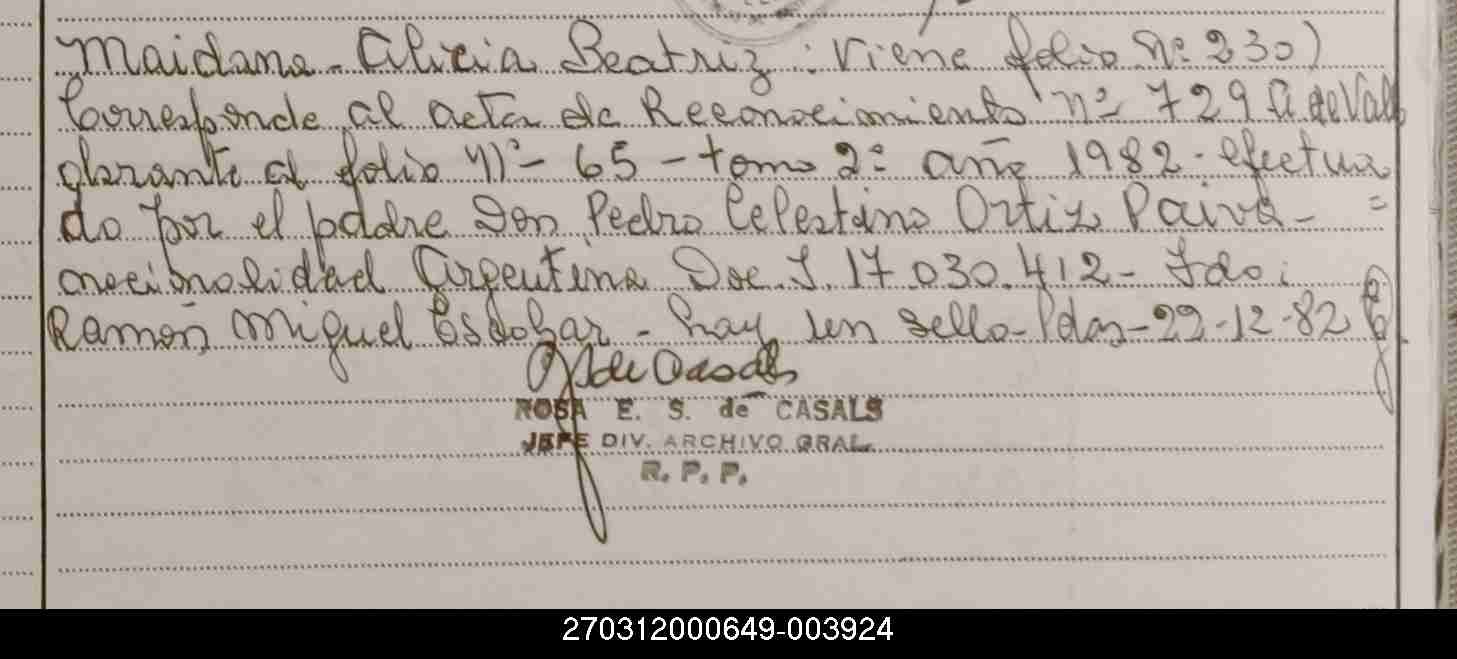 Maidana - Alicia Beatriz : Viene folio Nº 230)
Corresponde al acta de Reconocimiento nº 729
al folio Nº - 65 - tomo 2º año 1982 - efectua
do por el padre Don Pedro Celestino Ortiz Paiva - =
nacionalidad Argentina Doc. I. 17.030.412 - Fdo:
Ramón Miguel Escobar - hay un sello - Pdas - 22-12-82
ROSA E. S. de CASALS
JEFE DIV. ARCHIVO GRAL.
R. P. P.
270312000649-003924